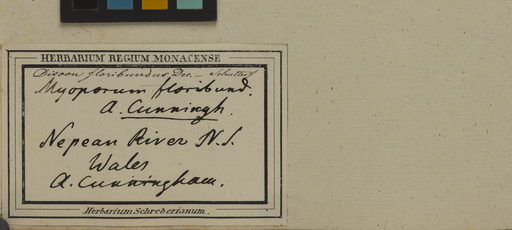 HERBARIUM REGIUM MONACENSE
Disoon floribundus Dec. —
Myoporum floribund.
A. Cunningh.
Nepean River N.S.
Wales
A. Cunningham.
Herbarium Schreberianum.